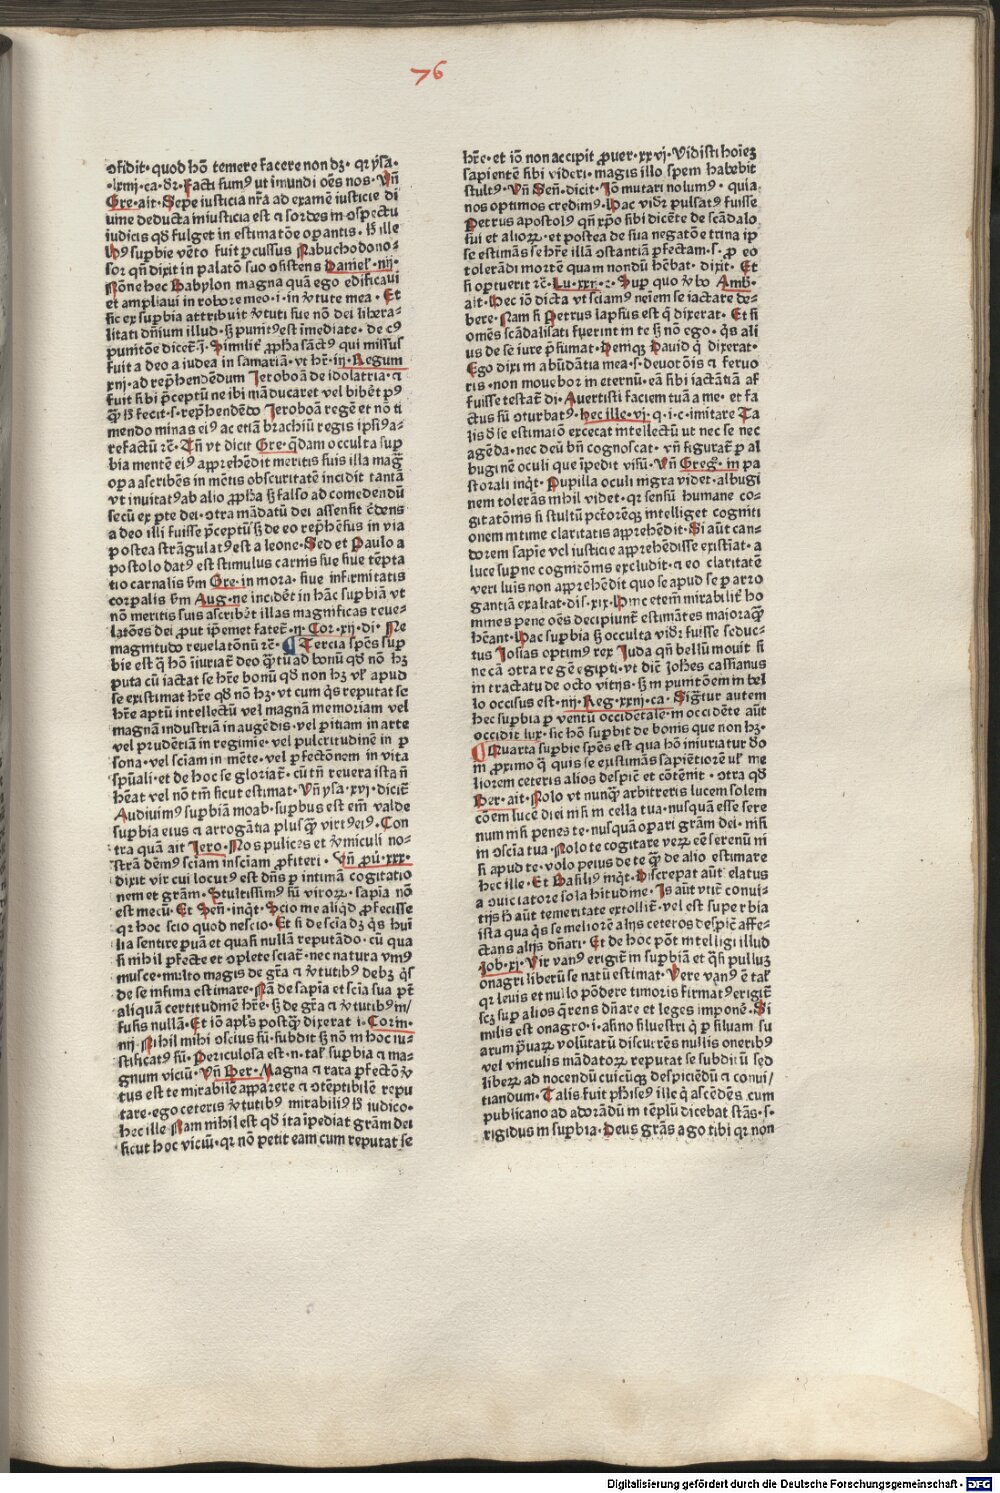 76
ɔfidit· quod hō temere facere non dꝫ· qꝛ ysa·
·lxiiij·ca·dꝛ· Facti sumꝰ ut īmundi oēs nos· Vn̄
Gre·ait· Sepe iusticia nr̄a ad examē iusticie di
uine deducta iniusticia est ⁊ sordes in ɔspectu
iudicis qd̄ fulget in estimatōe oꝑantis· H̄ ille
hꝰ suꝑbie vēto fuit ꝑcussus Nabuchodono-
sor qn̄ dixit in palatō suo ɔsistens Daniel·iiij·
Nōne hec Babylon magna quā ego edificaui
et ampliaui in robore meo·i·in ꝟtute mea· Et
sic ex suꝑbia attribuit ꝟtuti sue nō dei libera-
litati dn̄ium illud· sꝫ punitꝰ est īmediate· de cꝰ
punitōe dicet̄·j· Similit̄ ꝓpha sāctꝰ qui missus
fuit a deo a iudea in samariā· vt hr̄·iij·Regum
xiij· ad rep̄hendēdum Jeroboā de idolatria· ⁊
fuit sibi p̄ceptū ne ibi māducaret vel bibet̄ pꝰ
q̄ꝫ h̄ fecit·s·rep̄hendēdo Jeroboā regē et nō ti
mendo minas eiꝰ ac etiā brachiū regis ipsiꝰ a-
refactū ⁊c̄· Tn̄ vt dicit Gre· q̄dam occulta suꝑ
bia mentē eiꝰ apprehēdit meritis suis illa mag̅
oꝑa ascribēs in mētis obscuritatē incidit tantā
vt inuitatꝰ ab alio ꝓpha sꝫ falso ad comedendū
secū ex ꝑte dei· ɔtra mādatū dei assensit c̄dens
a deo illi fuisse p̄ceptū sꝫ de eo rep̄hēsus in via
postea strāgulatꝰ est a leone· Sed et Paulo a
postolo datꝰ est stimulus carnis sue siue tēpta
tio carnalis ẜm Gre·in mora· siue infirmitatis
corꝑalis ẜm Aug·ne incidēt in hāc suꝑbiā vt
nō meritis suis ascribēt illas magnificas reue-
latōes dei ꝓut ip̄emet fatet̄·ij·Cor·xij·di· Ne
magnitudo reuelatōnū ⁊c̄· ¶ Tercia spēs suꝑ
bie est q̄ hō īiuriat̄ deo q̄ꝫtū ad bonū qd̄ nō hꝫ
puta cū iactat se hr̄e bonū qd̄ non hꝫ vl̓ apud
se existimat hr̄e qd̄ nō hꝫ· vt cum q̇s reputat se
hr̄e aptū intellectū vel magnā memoriam vel
magnā industriā in augēdis· vel ꝑitiam in arte
vel prudētiā in regimīe· vel pulcritudinē in ꝑ
sona· vel sciam in mēte· vel ꝑfectōnem in vita
spūali· et de hoc se gloriat̄· cū tn̄ reuera ista n̄
hēat vel nō tm̄ sicut estimat· Vn̄ ysa·xvj·dicit̄
Audiuimꝰ suꝑbiā moab· suꝑbus est em̄ valde
suꝑbia eius ⁊ arrogātia plus q̄ꝫ virtꝰ eiꝰ· Con
tra quā ait Jero· Nos pulices et ꝟmiculi no-
strā dēmꝰ sciam insciam ꝓfiteri· Vn̄ ꝓū·xxx·
dixit vir cui locutꝰ est dn̄s ꝑ intimā cogitatio
nem et grām· Stultissimꝰ sū viroꝝ· sapia nō
est mecū· Et Sen̄·inq̇t· Scio me aliq̇d ꝓfecisse
qꝛ hoc scio quod nescio· Et si de sciā dꝫ q̇s hui̅
lia sentire ꝑuā et quasi nullā reputādo· cū qua
si nihil ꝑfecte et ɔplete sciat̄· nec natura vniꝰ
musce· multo magis de gr̄a ⁊ ꝟtutibꝰ debꝫ q̇s
de se infima estimare· Nā de sapia et scīa sua pt̄
aliquā certitudinē hr̄e· sꝫ de gr̄a ⁊ ꝟtutibꝰ in/
fusis nullā· Et iō apl̓s postq̄ꝫ dixerat i·Corin·
iiij· Nihil mihi ɔscius sū· subdit sꝫ nō in hoc iu-
stificatꝰ sū· Periculosa est·n·tal̓ suꝑbia ⁊ ma-
gnum viciū· Vn̄ Ber· Magna ⁊ rara ꝑfectōꝟ
tus est te mirabilē apparere ⁊ ɔtēptibilē repu
tare· ego ceteris ꝟtutibꝰ mirabiliꝰ h̄ iudico·
hec ille Nam nihil est qd̄ ita īpediat grām dei
sicut hoc viciū· qꝛ nō petit eam cum reputat se
hr̄e· et iō non accipit ꝓuer·xxvj· Vidisti hoīeꝫ
sapientē sibi videri· magis illo spem habebit
stultꝰ· Vn̄ Sen̄·dicit· Iō mutari nolumꝰ· quia
nos optimos credimꝰ· Hac vid̄r pulsatꝰ fuisse
Petrus apostolꝰ qn̄ xp̄o sibi dicēte de scādalo
sui et alioꝝ· et postea de sua negatōe trina ip̄
se estimās se hr̄e illā ɔstantiā ꝑfectam·s· ꝓ eo
tolerādi mortē quam nondū hēbat· dixit· Et
si oꝑtuerit ⁊c̄· Lu·xxij·⁊· Suꝑ quo ꝟbo Amb·
ait· Hec iō dicta vt sciamꝰ neīem se iactare de-
bere· Nam si Petrus lapsus est q̇ dixerat· Et si
omēs scādalisati fuerint in te sꝫ nō ego· q̇s ali
us de se iure p̄sumat· Deniqꝫ Dauid q̇ dixerat·
Ego dixi in abūdātia mea·s·deuotōis ⁊ feruo
ris· non mouebor in eternū· eā sibi iactātiā af
fuisse testat̄ dī· Auertisti faciem tuā a me· et fa
ctus sū ɔturbatꝰ· hec ille·vj·q·i·c·imitare Ta
lis d̄ se estimaiō excecat intellectū ut nec se nec
agēda· nec deū bn̄ cognoscat· vn̄ figurat̄ ꝑ al
buginē oculi que īpedit visū· Vn̄ Greg̅· in pa
storali inq̇t· Pupilla oculi nigra videt· albugi
nem tolerās nihil videt· qꝛ sensū humane co-
gitatōnis si stultū pctōrēqꝫ intelliget cogniti
onem intime claritatis apprehēdit· Si aūt can-
dorem sapīe vel iusticie apprehēdisse existīat· a
luce suꝑne cognitōnis excludit· ⁊ eo claritatē
veri luis non apprehēdit quo se apud se ꝑ arro
gantiā exaltat· dis·xix· Hinc etem̄ mirabilit̄ ho
mines pene oēs decipiunt̄ estimātes maiora q̄ꝫ
hēant· Hac suꝑbia sꝫ occulta vid̄r fuisse seduc-
tus Josias optimꝰ rex Juda qn̄ bellū mouit si
necā ɔtra regē egipti· vt dic̄ Johēs cassianus
in tractatu de octo vitijs· sꝫ in punitōem in bel
lo occisus est·iiij·Reg·xxiij·ca· Sigtur autem
hec suꝑbia ꝑ ventū occidētalē· in occidēte aūt
occidit lux· sic hō suꝑbit de bonis que non hꝫ·
¶ Quarta suꝑbie spēs est qua hō iniuriatur d̄o
in ꝓximo q̄ quis se existimās sapiētiorē ul̓ me
liorem ceteris alios despic̄ et cōtēnit· ɔtra qd̄
Ber·ait· Nolo vt nunq̄ꝫ arbitreris lucem solem
cōem lucē diei nisi in cella tua· nusquā esse sere
num nisi penes te· nusquā oꝑari grām dei· nisi
in ɔscīa tua· Nolo te cogitare veꝝ eē serenū ni
si apud te· volo peius de te q̄ꝫ de alio estimare
hec ille· Et Basiliꝰ inq̇t· Discrepat aūt elatus
a ɔuiciatore sola hitudine· Is aūt vtit̄ conui-
tijs h̄ aūt temeritate extollit̄· vel est superbia
ista qua q̇s se meliorē alijs ceteros despic̄t affe-
ctans alijs dn̄ari· Et de hoc pōt intelligi illud
Job·xj· Vir vanꝰ erigit̄ in suꝑbiam et q̄si pulluꝫ
onagri liberū se natū estimat· Vere vanꝰ ē tal̓
qꝛ leuis et nullo pōdere timoris firmatꝰ erigit̄
scꝫ suꝑ alios q̄rens dn̄are et leges imponē· Si
milis est onagro·i·asino siluestri q̇ ꝑ siluam su
arum p̄uaꝝ volūtatū discurrēs nullis oneribꝰ
vel vinculis mādatoꝝ reputat se subditū sed
libeꝝ ad nocendū cuicūqꝫ despiciēdū ⁊ conui/
tiandum· Talis fuit phīseꝰ ille q̇ ascedēs cum
publicano ad adorādū in tēplū dicebat stās·s·
rigidus in suꝑbia· Deus grās ago tibi qꝛ non
Digitalisierung gefördert durch die Deutsche Forschungsgemeinschaft · DFG